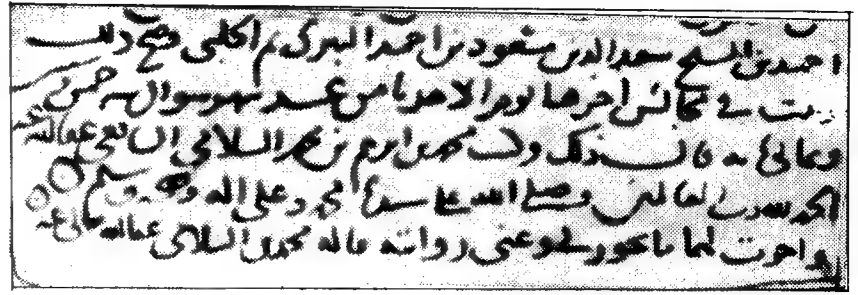 احمد بن الشيخ سعد الدين مسعود بن احمد البركي ثم الحلبي وصح ذلك
وثبت في مجالس اخرها يوم الاحد ثامن عشر شهر شوال سنة خمس
وثمانمائة قال ذلك وكتب محمد بن ابرهيم بن محمد السلامي الشافعي عفا الله عنه
الحمد لله رب العالمين وصلى الله على سيدنا محمد وعلى اله وصحبه وسلم
واجزت لهما ما يجوز لي وعني روايته قاله محمد السلامي عفا الله تعالى عنه